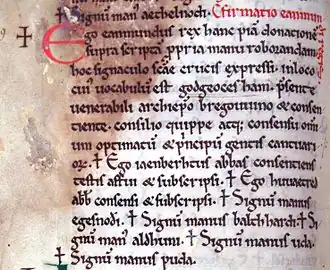 Signū man' aethelnoch. Cfirmatio eanmun
✝ Ego eanmundus rex hanc piā donationē
suprascriptā ppria manu roborandam
hoc signaculo scāe crucis expressi. in loco
cui' uocabulū est godgeoces ham. psente
uenerabili archiepo bregouuino & consen
tiente. consilio quippe atq; consensu om
nium optimatū & pncipū gentis cantuari
orꝛ. ✝ Ego iaenberhtus abbas consentiens
testis astiti & subscripsi. ✝ Ego huuaetred
abb' consensi & subscripsi. ✝ Signū manus
egesnodi. ✝ Signū manus baltheardi ✝ Si
gnū man' aldhuni. ✝ Signū manus uda.
✝ Signū manus puda.